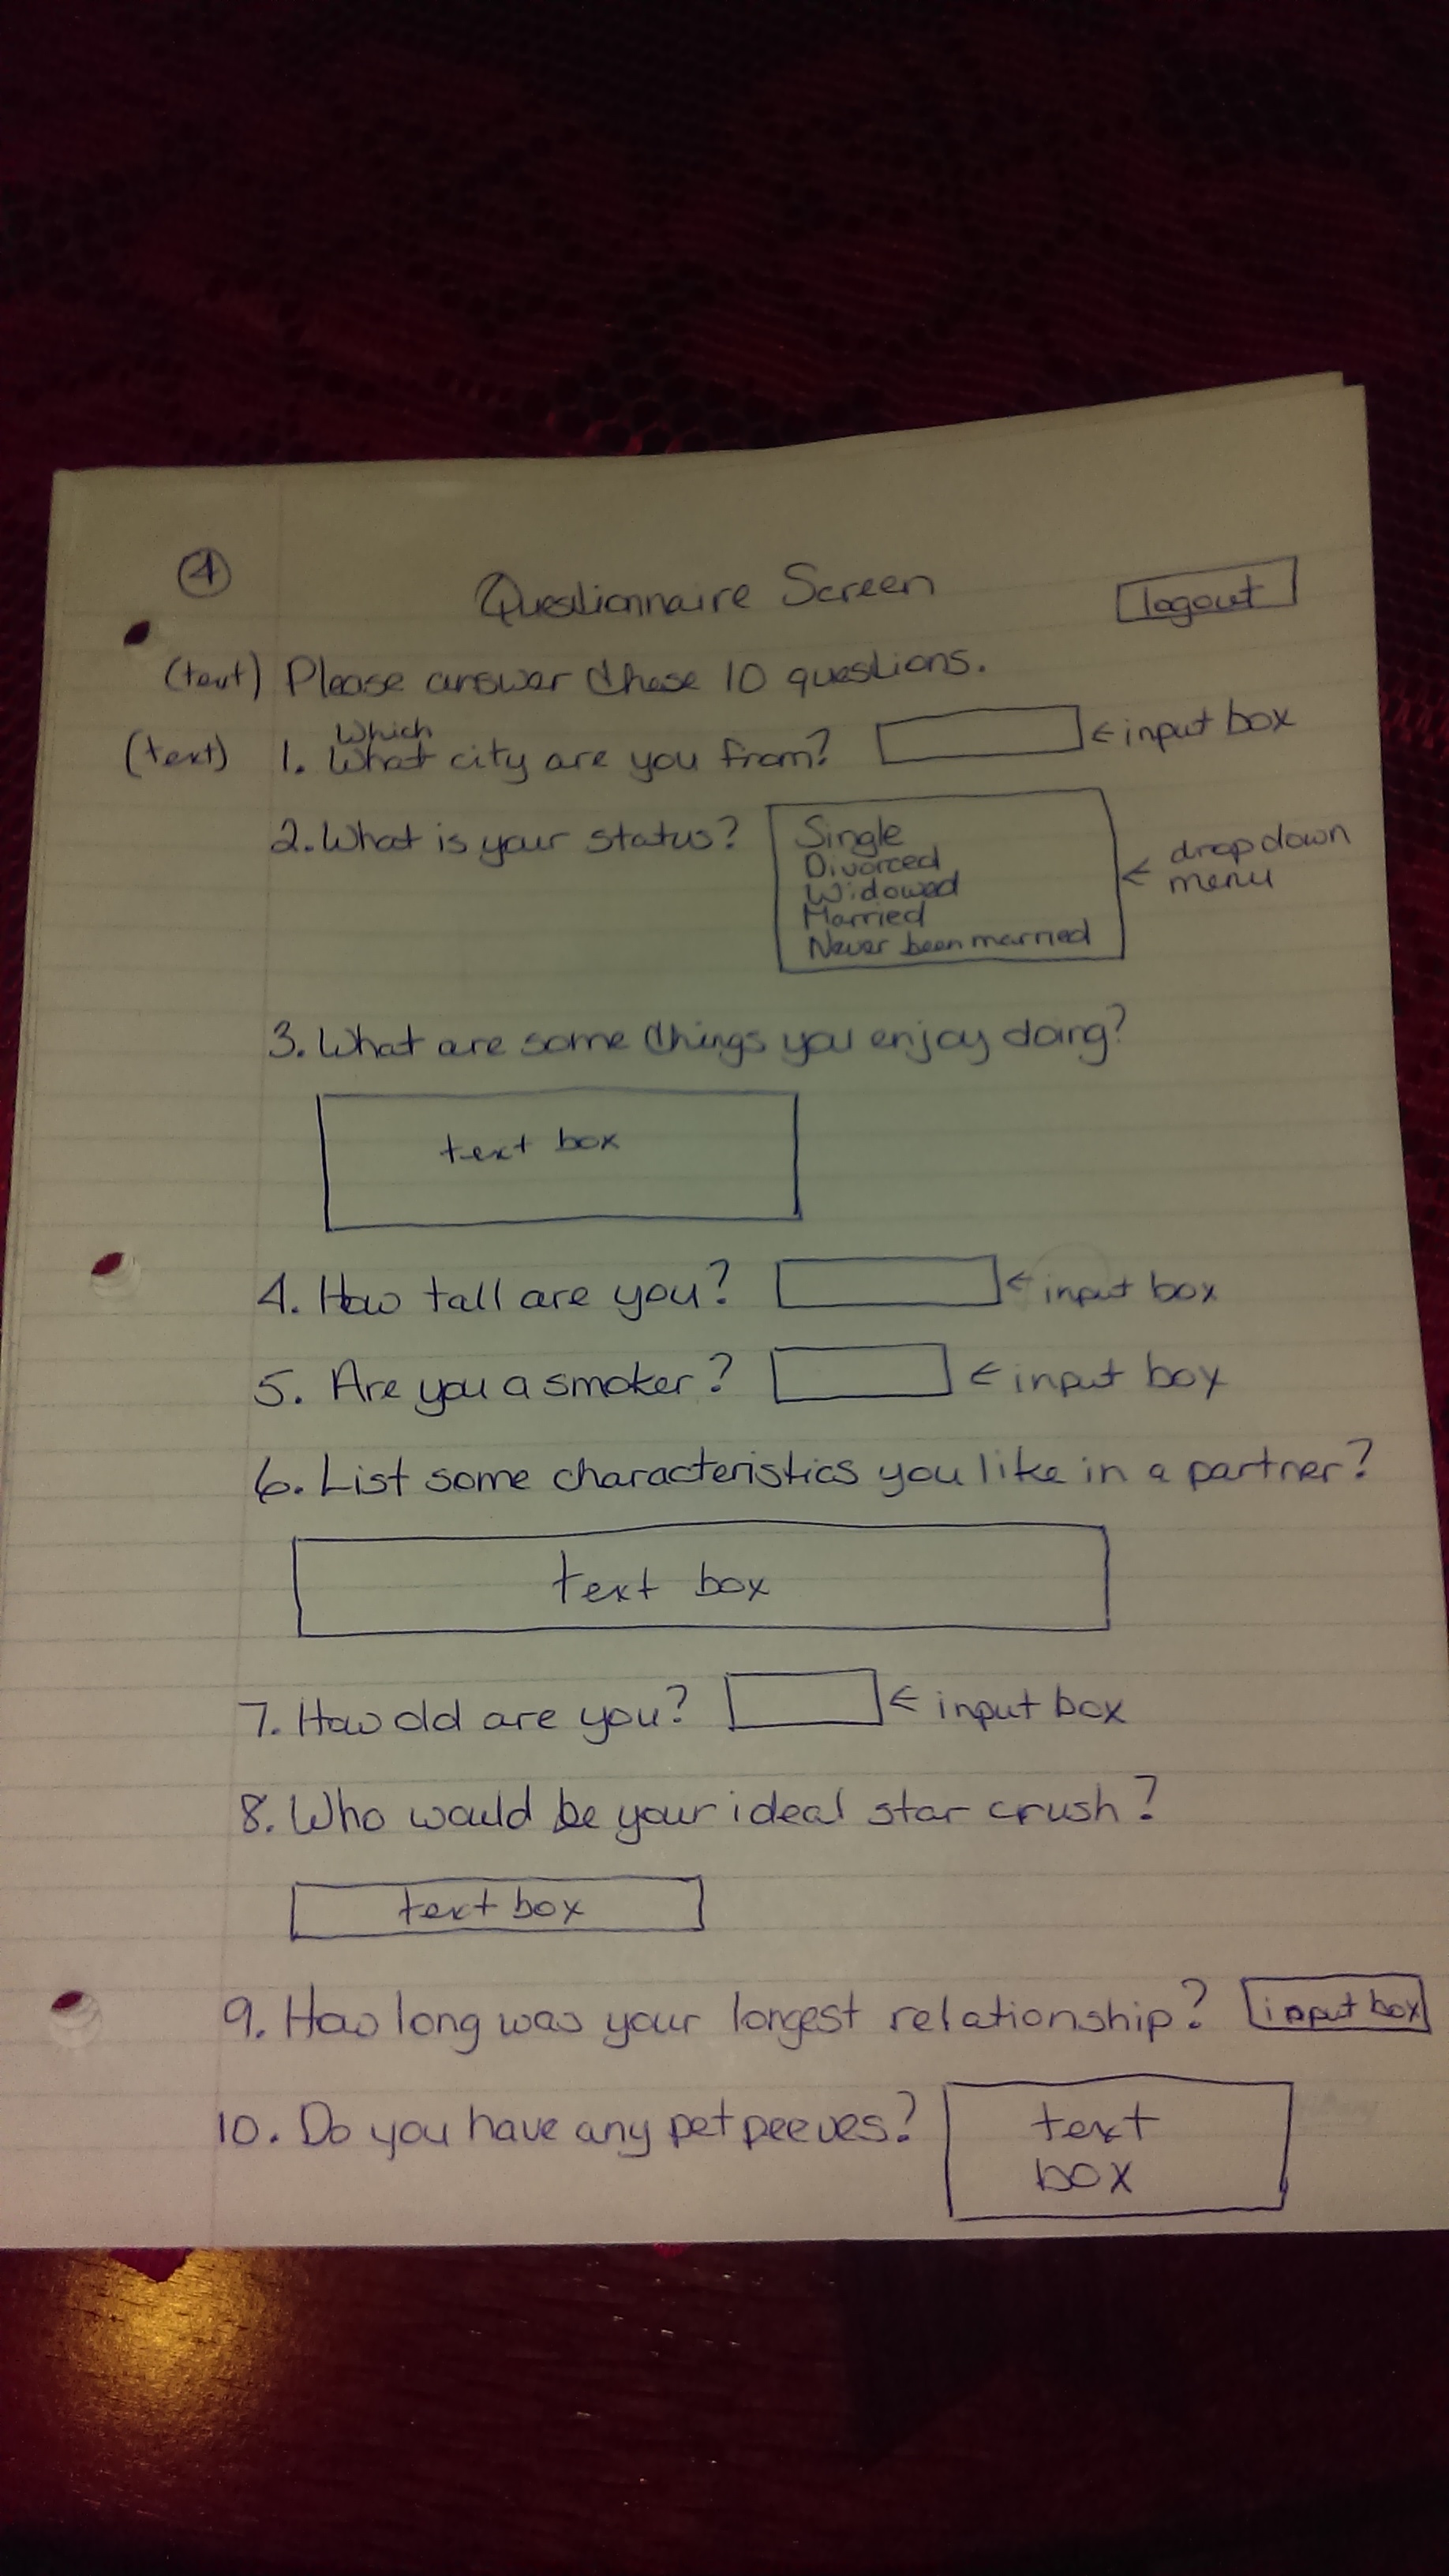 4
Questionnaire Screen
logout
(text) Please answer these 10 questions.
Which
(text) 1. What city are you from? ← input box
2. What is your status?
Single
Divorced
Widowed
Married
Never been married
← drop down
menu
3. What are some things you enjoy doing?
text box
4. How tall are you? ← input box
5. Are you a smoker? ← input box
6. List some characteristics you like in a partner?
text box
7. How old are you? ← input box
8. Who would be your ideal star crush?
text box
9. How long was your longest relationship? input box
10. Do you have any pet peeves?
text
box